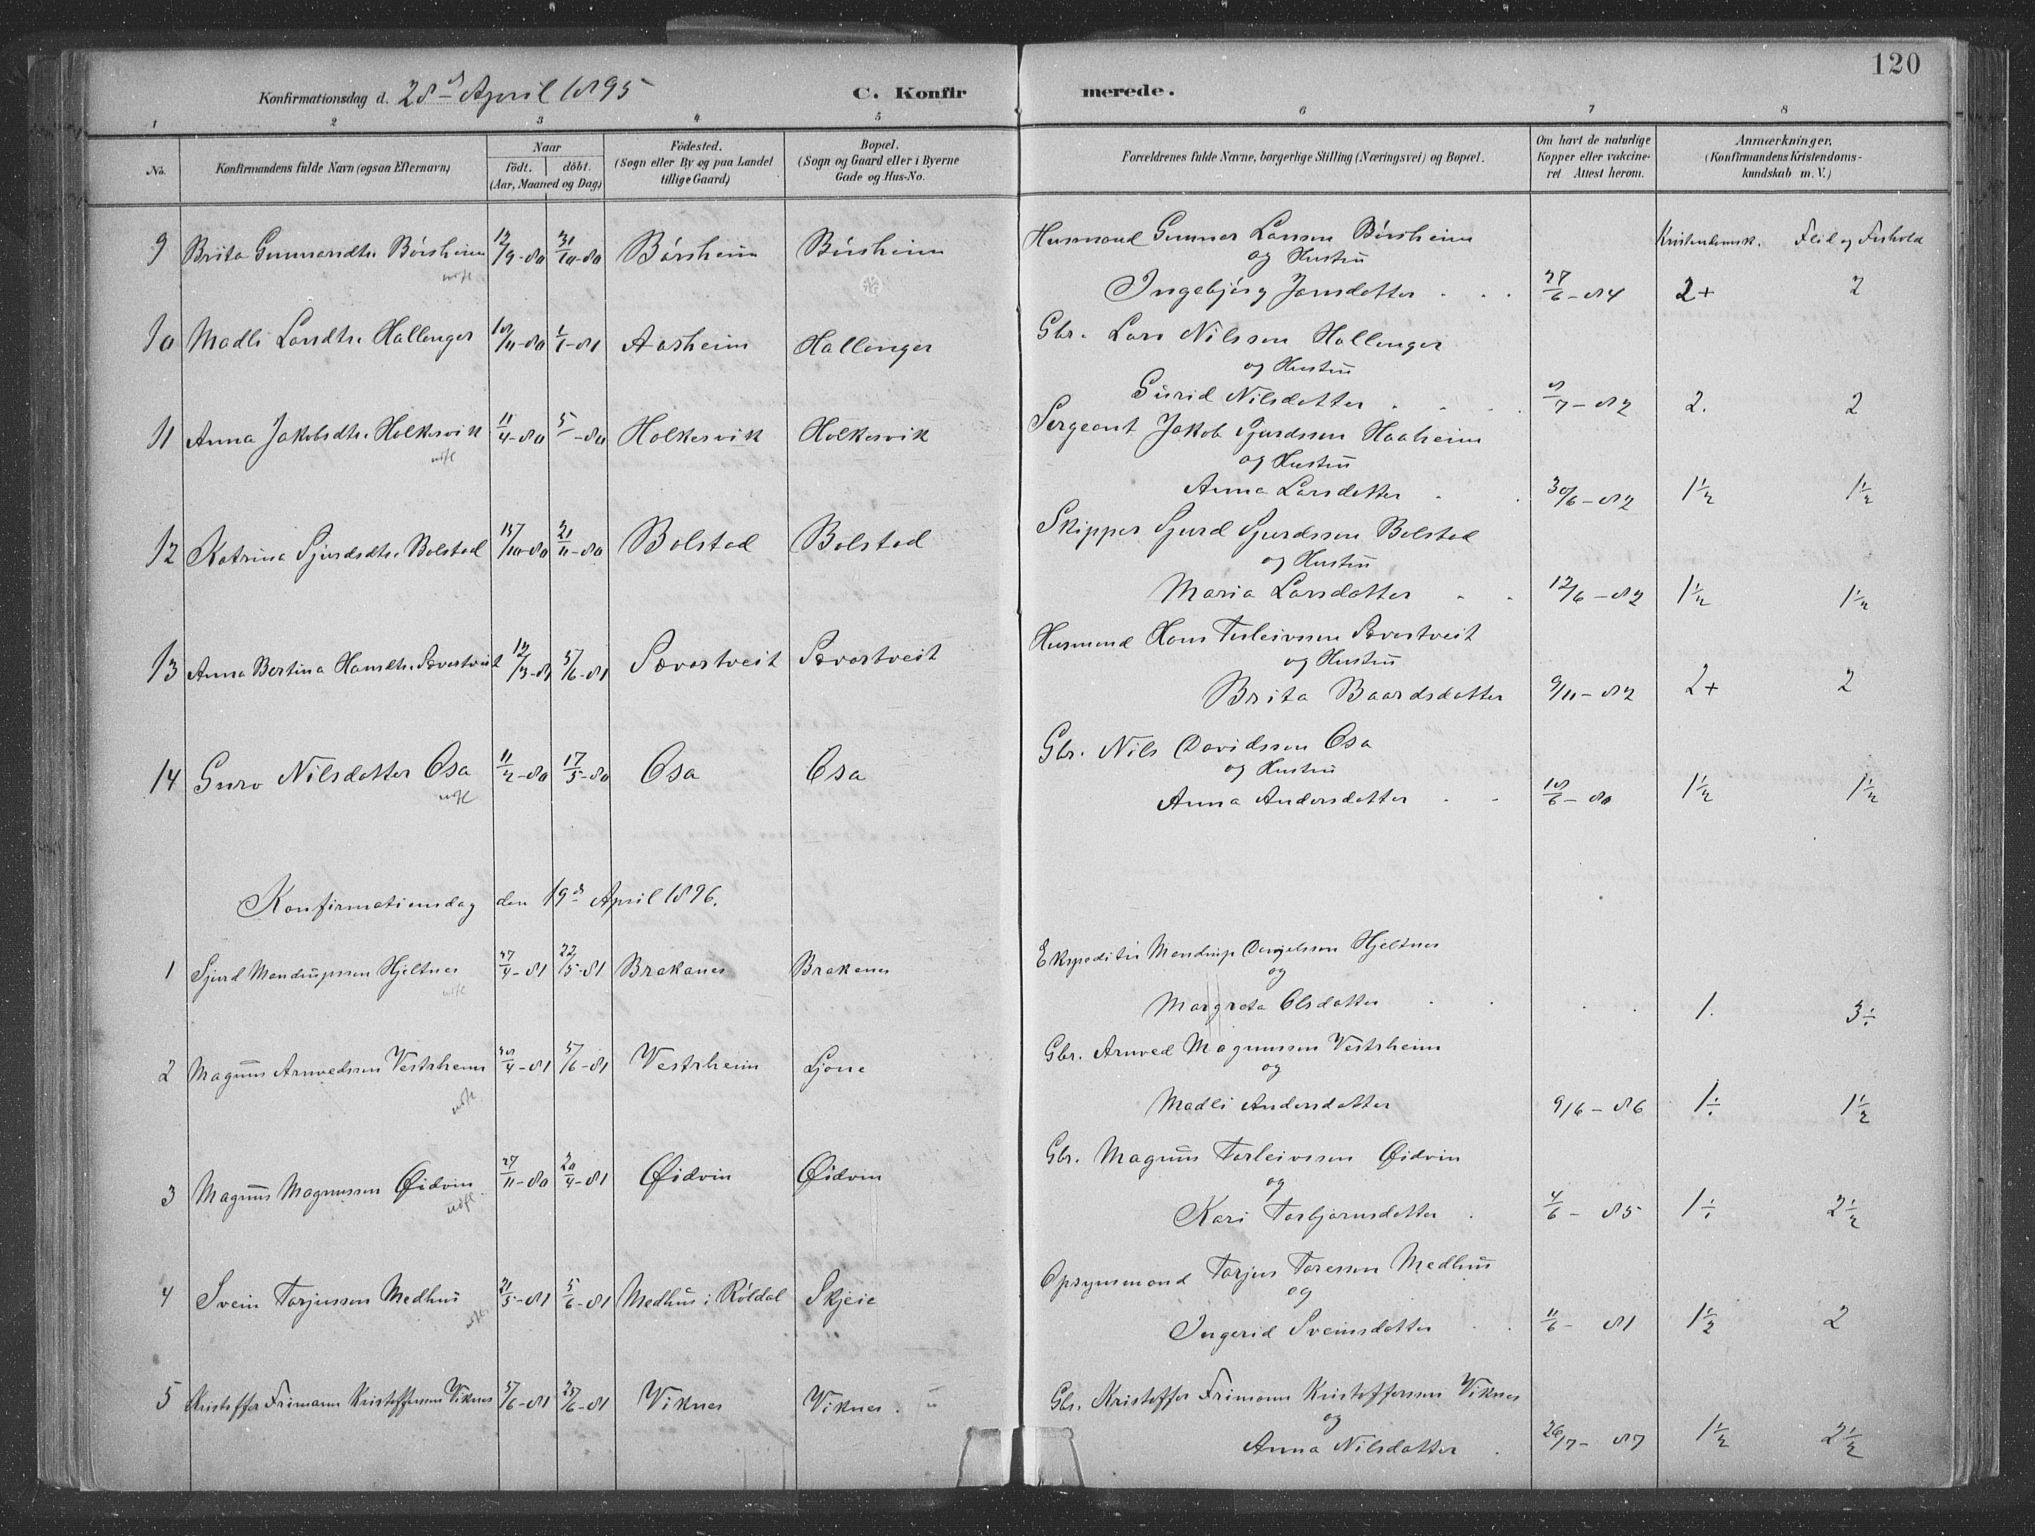 120
Konfirmationsdag d. 28de April 1895
C. Konfirmerede.
1 2 3 4 5 6 7 8
No.
Konfirmandens fulde Navn (ogsaa Efternavn)
Naar
födt. döbt.
(Aar, Maaned og Dag)
Födested.
(Sogn eller By og paa Landet
tillige Gaard)
Bopæl.
(Sogn og Gaard eller i Byerne
Gade og Hus-No.
Forældrenes fulde Navne, borgerlige Stilling (Næringsvei) og Bopæl.
Om havt de naturlige
Kopper eller vakcine-
ret Attest herom.
Anmærkninger.
(Konfirmandens Kristendoms-
kundskab m. V.)
Kristendomsk. Flid og Forhold
9 Brita Gunnarsdtr. Børsheim 12/9-80 31/10-80 Børsheim Børsheim Husmand Gunnar Larsen Børsheim
og Hustru
Ingebjörg Jansdatter 27/6-84 2+ 2
10 Madli Larsdtr. Hallanger 18/11-80 1/1-81 Aasheim Hallanger Gbr. Lars Nilssen Hallanger
og Hustru
Gurid Nilsdatter 8/7-82 2. 2
11 Anna Jakobsdtr. Holkesvik 11/4-80 5/ -80 Holkesvik Holkesvik Sergeant Jakob Sjurdssen Haaheim
og Hustru
Anna Larsdatter 30/6-82 1½ 1½
12 Katrina Sjurdsdtr. Bolstad 15/10-80 21/11-80 Bolstad Bolstad Skipper Sjurd Sjurdssen Bolstad
og Hustru
Maria Larsdatter 12/6-82 1½ 1½
13 Anna Bertina Hansdtr. Sævartveit 12/3-81 5/6-81 Sævartveit Sævartveit Husmand Hans Torleivssen Sævartveit
og Hustru
Brita Baardsdatter 9/11-82 2+ 2
14 Guro Nilsdatter Osa 11/2-80 17/5-80 Osa Osa Gbr. Nils Davidssen Osa
og Hustru
Anna Andersdatter 18/6-80 1½ 1½
Konfirmationsdag den 19de April 1896.
1 Sjurd Mandrupssen Hjeltnes 27/4-81 22/5-81 Brakanes Brakenes Ekspeditør Mandrup Hjeltnes
og
Margreta Olsdatter 1. 3÷
2 Magnus Arnvedssen Vestrheim 28/4-81 5/6-81 Vestrheim Ljone Gbr. Arnved Magnussen Vestrheim
og
Madli Andersdatter 9/6-86 1÷ 1½
3 Magnus Magnussen Øidvin 27/11-80 20/4-81 Øidvin Øidvin Gbr. Magnus Torleivssen Øidvin
og
Kari Torbjørnsdatter 4/6-85 1÷ 2½
4 Svein Tarjussen Medhus 21/5-81 5/6-81 Medhus i Röldal Skjeie Opsynsmand Tarjus Toressen Medhus
og
Ingerid Sveinsdatter 11/6-81 1½ 2
5 Kristoffer Frimann Kristofferssen Viknes 5/6-81 25/6-81 Viknes Viknes. Gbr. Kristoffer Frimann Kristofferssen Viknes
og
Anna Nilsdatter 26/7-87 1½ 2½